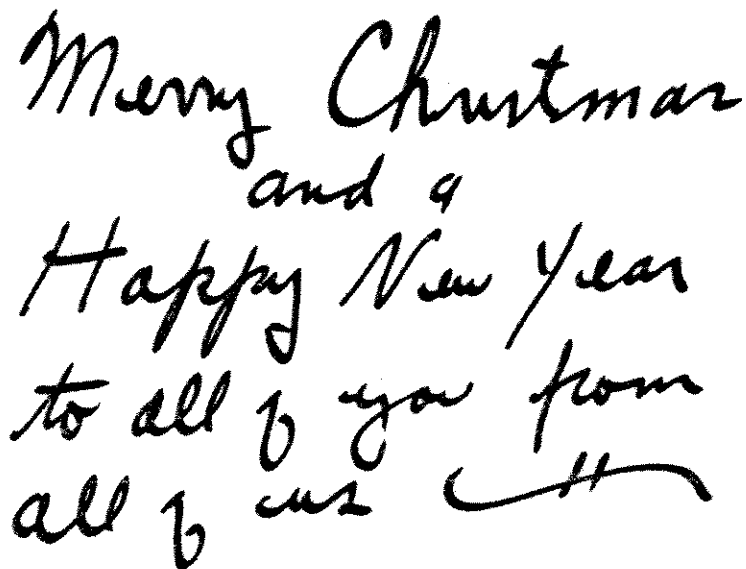 Merry Christmas
and a
Happy New Year
to all of you from
all of us